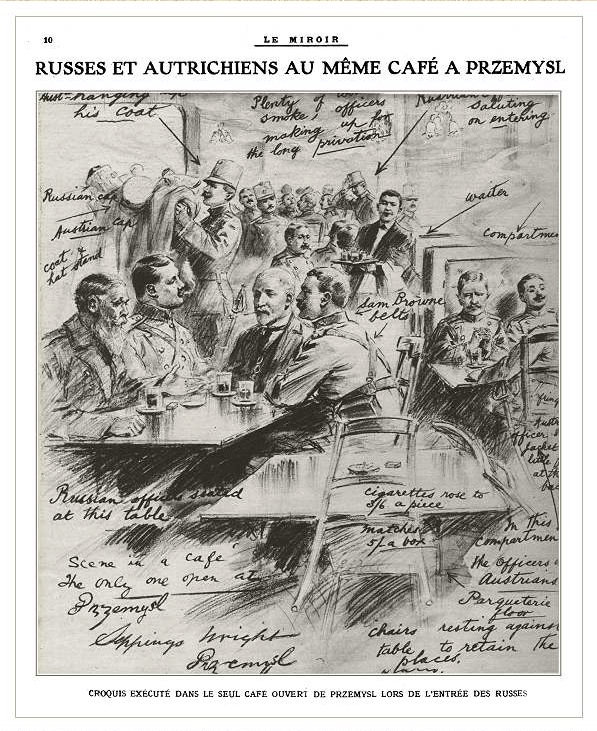 10
LE MIROIR
RUSSES ET AUTRICHIENS AU MÊME CAFÉ A PRZEMYSL
his coat
Plenty of
smoke, officers
making up for
the long privation
saluting
on entering
Russian cap
Austrian cap
coat &
hat stand
waiter
compartmen
Sam Browne
belts
Russian officers seated
at this table
cigarettes rose to
5/6 a piece
matches
5/ a box
In this
compartmen
the officers
Austrians
Parqueterie
floor
chairs resting against
table to retain the
places.
Scene in a café
The only one open at
Przemysl
Seppings Wright
Przemysl
CROQUIS EXÉCUTÉ DANS LE SEUL CAFÉ OUVERT DE PRZEMYSL LORS DE L'ENTRÉE DES RUSSES